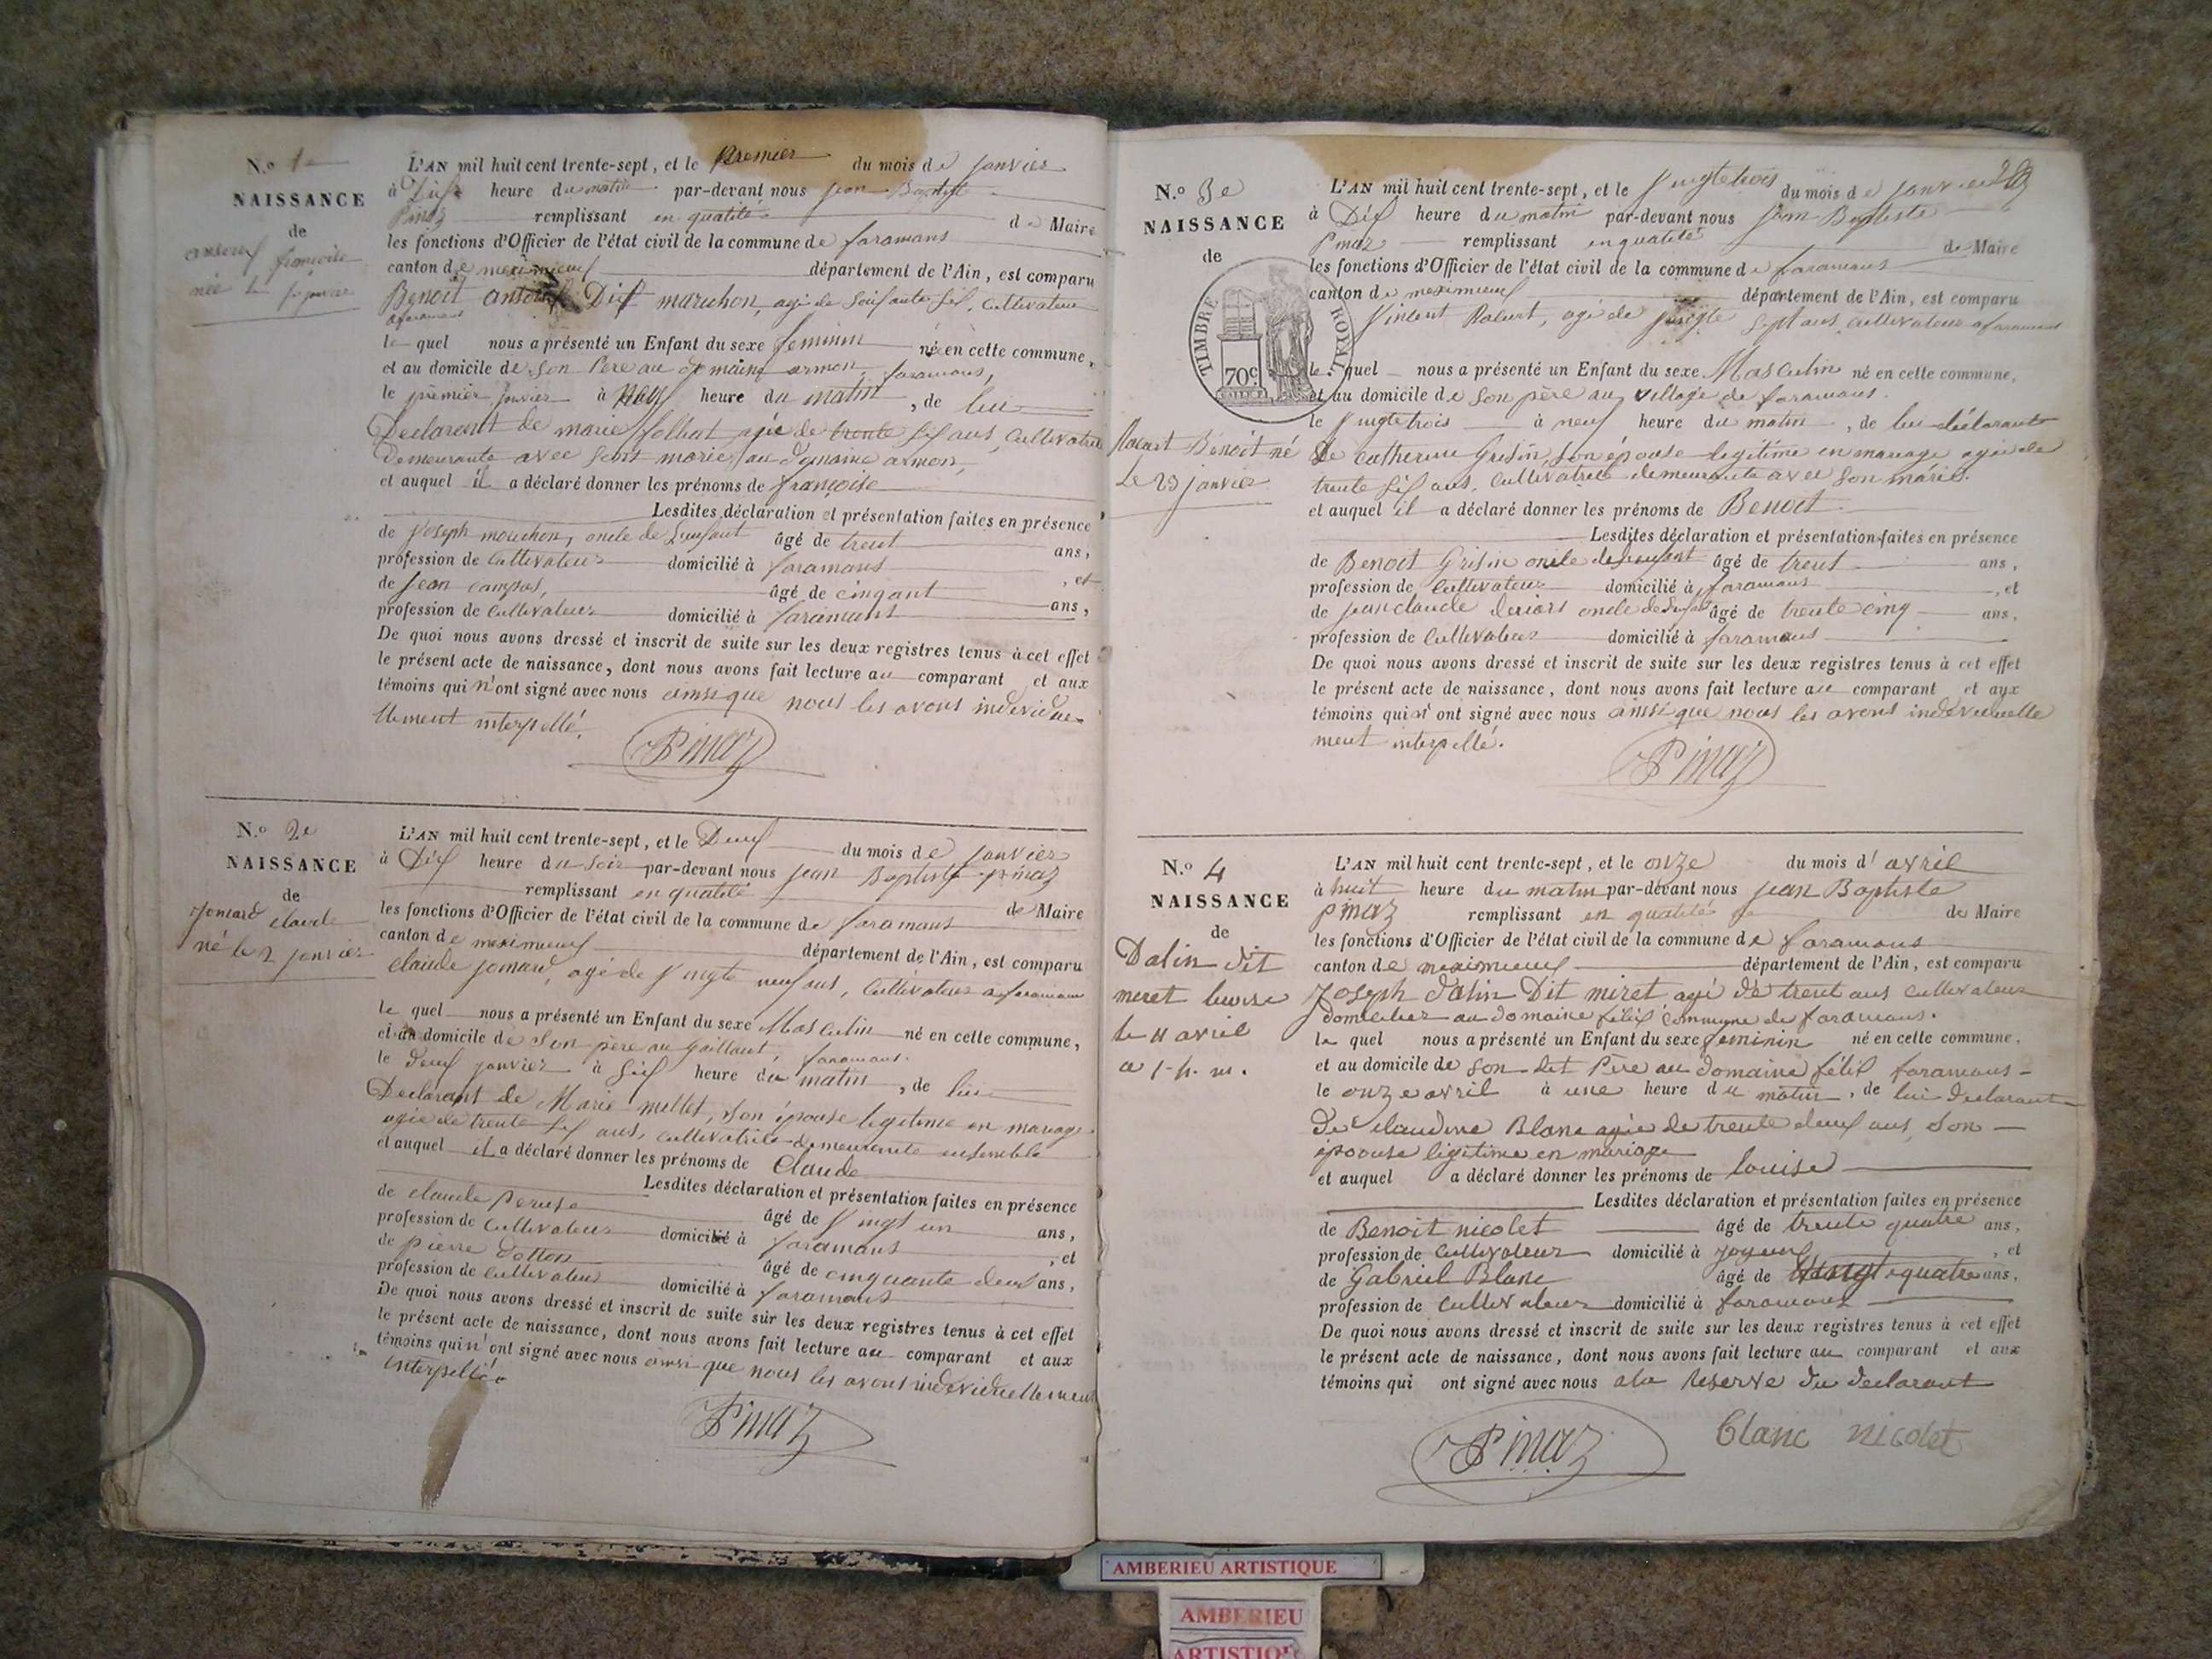 N.o 1e
NAISSANCE
de
françoise
née le 1er janvier
L'AN mil huit cent trente-sept, et le premier du mois de janvier
à Dix heure du matin par-devant nous jean Baptiste
Pinaz remplissant en qualité de Maire
les fonctions d'Officier de l'état civil de la commune de faramans
canton de meximieux département de l'Ain, est comparu
Benoit Dit maruchon, agé de soixante six, cultivateur
a faramans
le quel nous a présenté un Enfant du sexe feminin né en cette commune,
et au domicile de son Pere au domaine armon, faramans,
le premier janvier à heure du matin, de lui
Declarant de marie agée de trente six ans, cultivatrice
Demeurante avec sont marie, au domaine armon,
et auquel il a déclaré donner les prénoms de françoise
Lesdites déclaration et présentation faites en présence
de joseph mouchon, oncle de Lenfant âgé de trent ans,
profession de Cultivateur domicilié à faramans, et
de jean campas, âgé de cinqant ans,
profession de cultivateur domicilié à faramans
De quoi nous avons dressé et inscrit de suite sur les deux registres tenus à cet effet
le présent acte de naissance, dont nous avons fait lecture au comparant et aux
témoins qui n'ont signé avec nous ainsi que nous les avons individue-
llement interpellé.
Pinaz
N.o 2e
NAISSANCE
de
Jomard claude
né le 2 janvier
L'AN mil huit cent trente-sept, et le Deux du mois de janvier
à Dix heure du soir par-devant nous jean Baptiste pinaz
remplissant en qualité de Maire
les fonctions d'Officier de l'état civil de la commune de faramans
canton de meximieux département de l'Ain, est comparu
claude jomard, agé de vingte neuf ans, cultivateur a faramans
le quel nous a présenté un Enfant du sexe Masculin né en cette commune,
et au domicile de son père au gaillant, faramans.
le deux janvier à six heure du matin, de lui
Declarant de Marie millet, son épouse legitime en mariage
agée de trente six ans, cultivatrice demeurente ensemble
et auquel il a déclaré donner les prénoms de Claude
Lesdites déclaration et présentation faites en présence
de claude Peruse âgé de vingt un ans,
profession de Cultivateur domicilié à faramans, et
de pierre Dotton âgé de cinquante deux ans,
profession de cultivateur domicilié à faramans
De quoi nous avons dressé et inscrit de suite sur les deux registres tenus à cet effet
le présent acte de naissance, dont nous avons fait lecture au comparant et aux
témoins qui n'ont signé avec nous ainsi que nous les avons individuellement
interpellé.
Pinaz
N.o 3e
NAISSANCE
de
TIMBRE ROYAL
70c
Rabert Benoit né
Le 23 janvier
L'AN mil huit cent trente-sept, et le vingtetrois du mois de janvier
à Dix heure du matin par-devant nous jean Baptiste
Pinaz remplissant en qualité de Maire
les fonctions d'Officier de l'état civil de la commune de faramans
canton de meximieux département de l'Ain, est comparu
Vincent Rabert, agé de vingte sept ans cultivateur a faramans
le quel nous a présenté un Enfant du sexe Masculin né en cette commune,
et au domicile de son père au village de faramans.
le vingtetrois à neuf heure du matin, de lui déclarant
De catherine Grisin, son épouse legitime en mariage agée de
trente six ans, cultivatrice demeurante avec son maries.
et auquel il a déclaré donner les prénoms de Benoit
Lesdites déclaration et présentation faites en présence
de Benoit Grisin oncle de lenfant âgé de trent ans,
profession de Cultivateur domicilié à faramans, et
de jean claude oncle de Lenfant âgé de trente cinq ans,
profession de Cultivateur domicilié à faramans
De quoi nous avons dressé et inscrit de suite sur les deux registres tenus à cet effet
le présent acte de naissance, dont nous avons fait lecture au comparant et aux
témoins qui n'ont signé avec nous ainsi que nous les avons individuelle
ment interpellé.
Pinaz
N.o 4
NAISSANCE
de
Dalin dit
meret louise
le 11 avril
a 1 h. m.
L'AN mil huit cent trente-sept, et le onze du mois d'avril
à huit heure du matin par-devant nous jean Baptiste
pinaz remplissant en qualité de Maire
les fonctions d'Officier de l'état civil de la commune de faramans
canton de meximieux département de l'Ain, est comparu
Joseph dalin Dit miret agé de trent ans cultivateur
domicilier au domaine félix commune de faramans.
le quel nous a présenté un Enfant du sexe feminin né en cette commune,
et au domicile de son dit Père au domaine félix faramans
le onze avril à une heure du matin, de lui declarant
De claudine Blanc agée de trente deux ans, son
épouse légitime en mariage
et auquel a déclaré donner les prénoms de louise
Lesdites déclaration et présentation faites en présence
de Benoit nicolet âgé de trente quatre ans,
profession de cultivateur domicilié à joyeux, et
de Gabriel Blanc âgé de vingt quatre ans,
profession de cultivateur domicilié à faramans
De quoi nous avons dressé et inscrit de suite sur les deux registres tenus à cet effet
le présent acte de naissance, dont nous avons fait lecture au comparant et aux
témoins qui ont signé avec nous a la reserve du declarant
Pinaz Blanc nicolet
AMBERIEU ARTISTIQUE
AMBERIEU
ARTISTIQUE